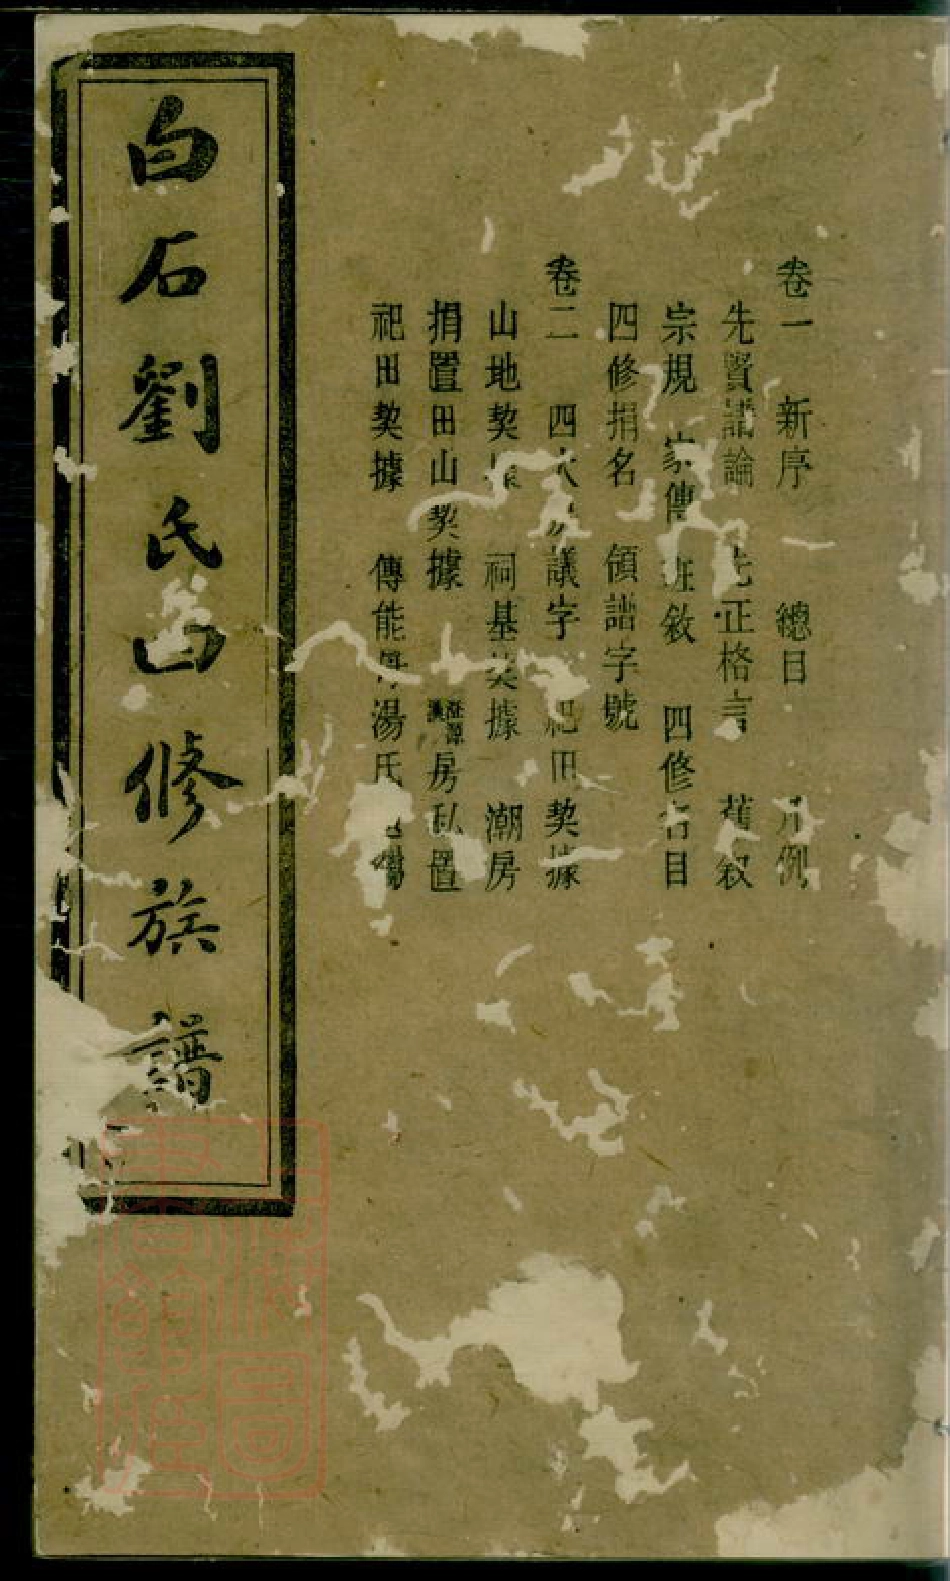 卷一 新序 總目 凡例
先賢譜論 先正格言 舊敘
宗規 家傳 班敘 四修名目
四修捐名 領譜字號
卷二 四大房議字 祀田契據
山地契據 祠基契據 潮房
捐置田山契據 房私置
祀田契據 傳能 湯氏
白石劉氏四修族譜